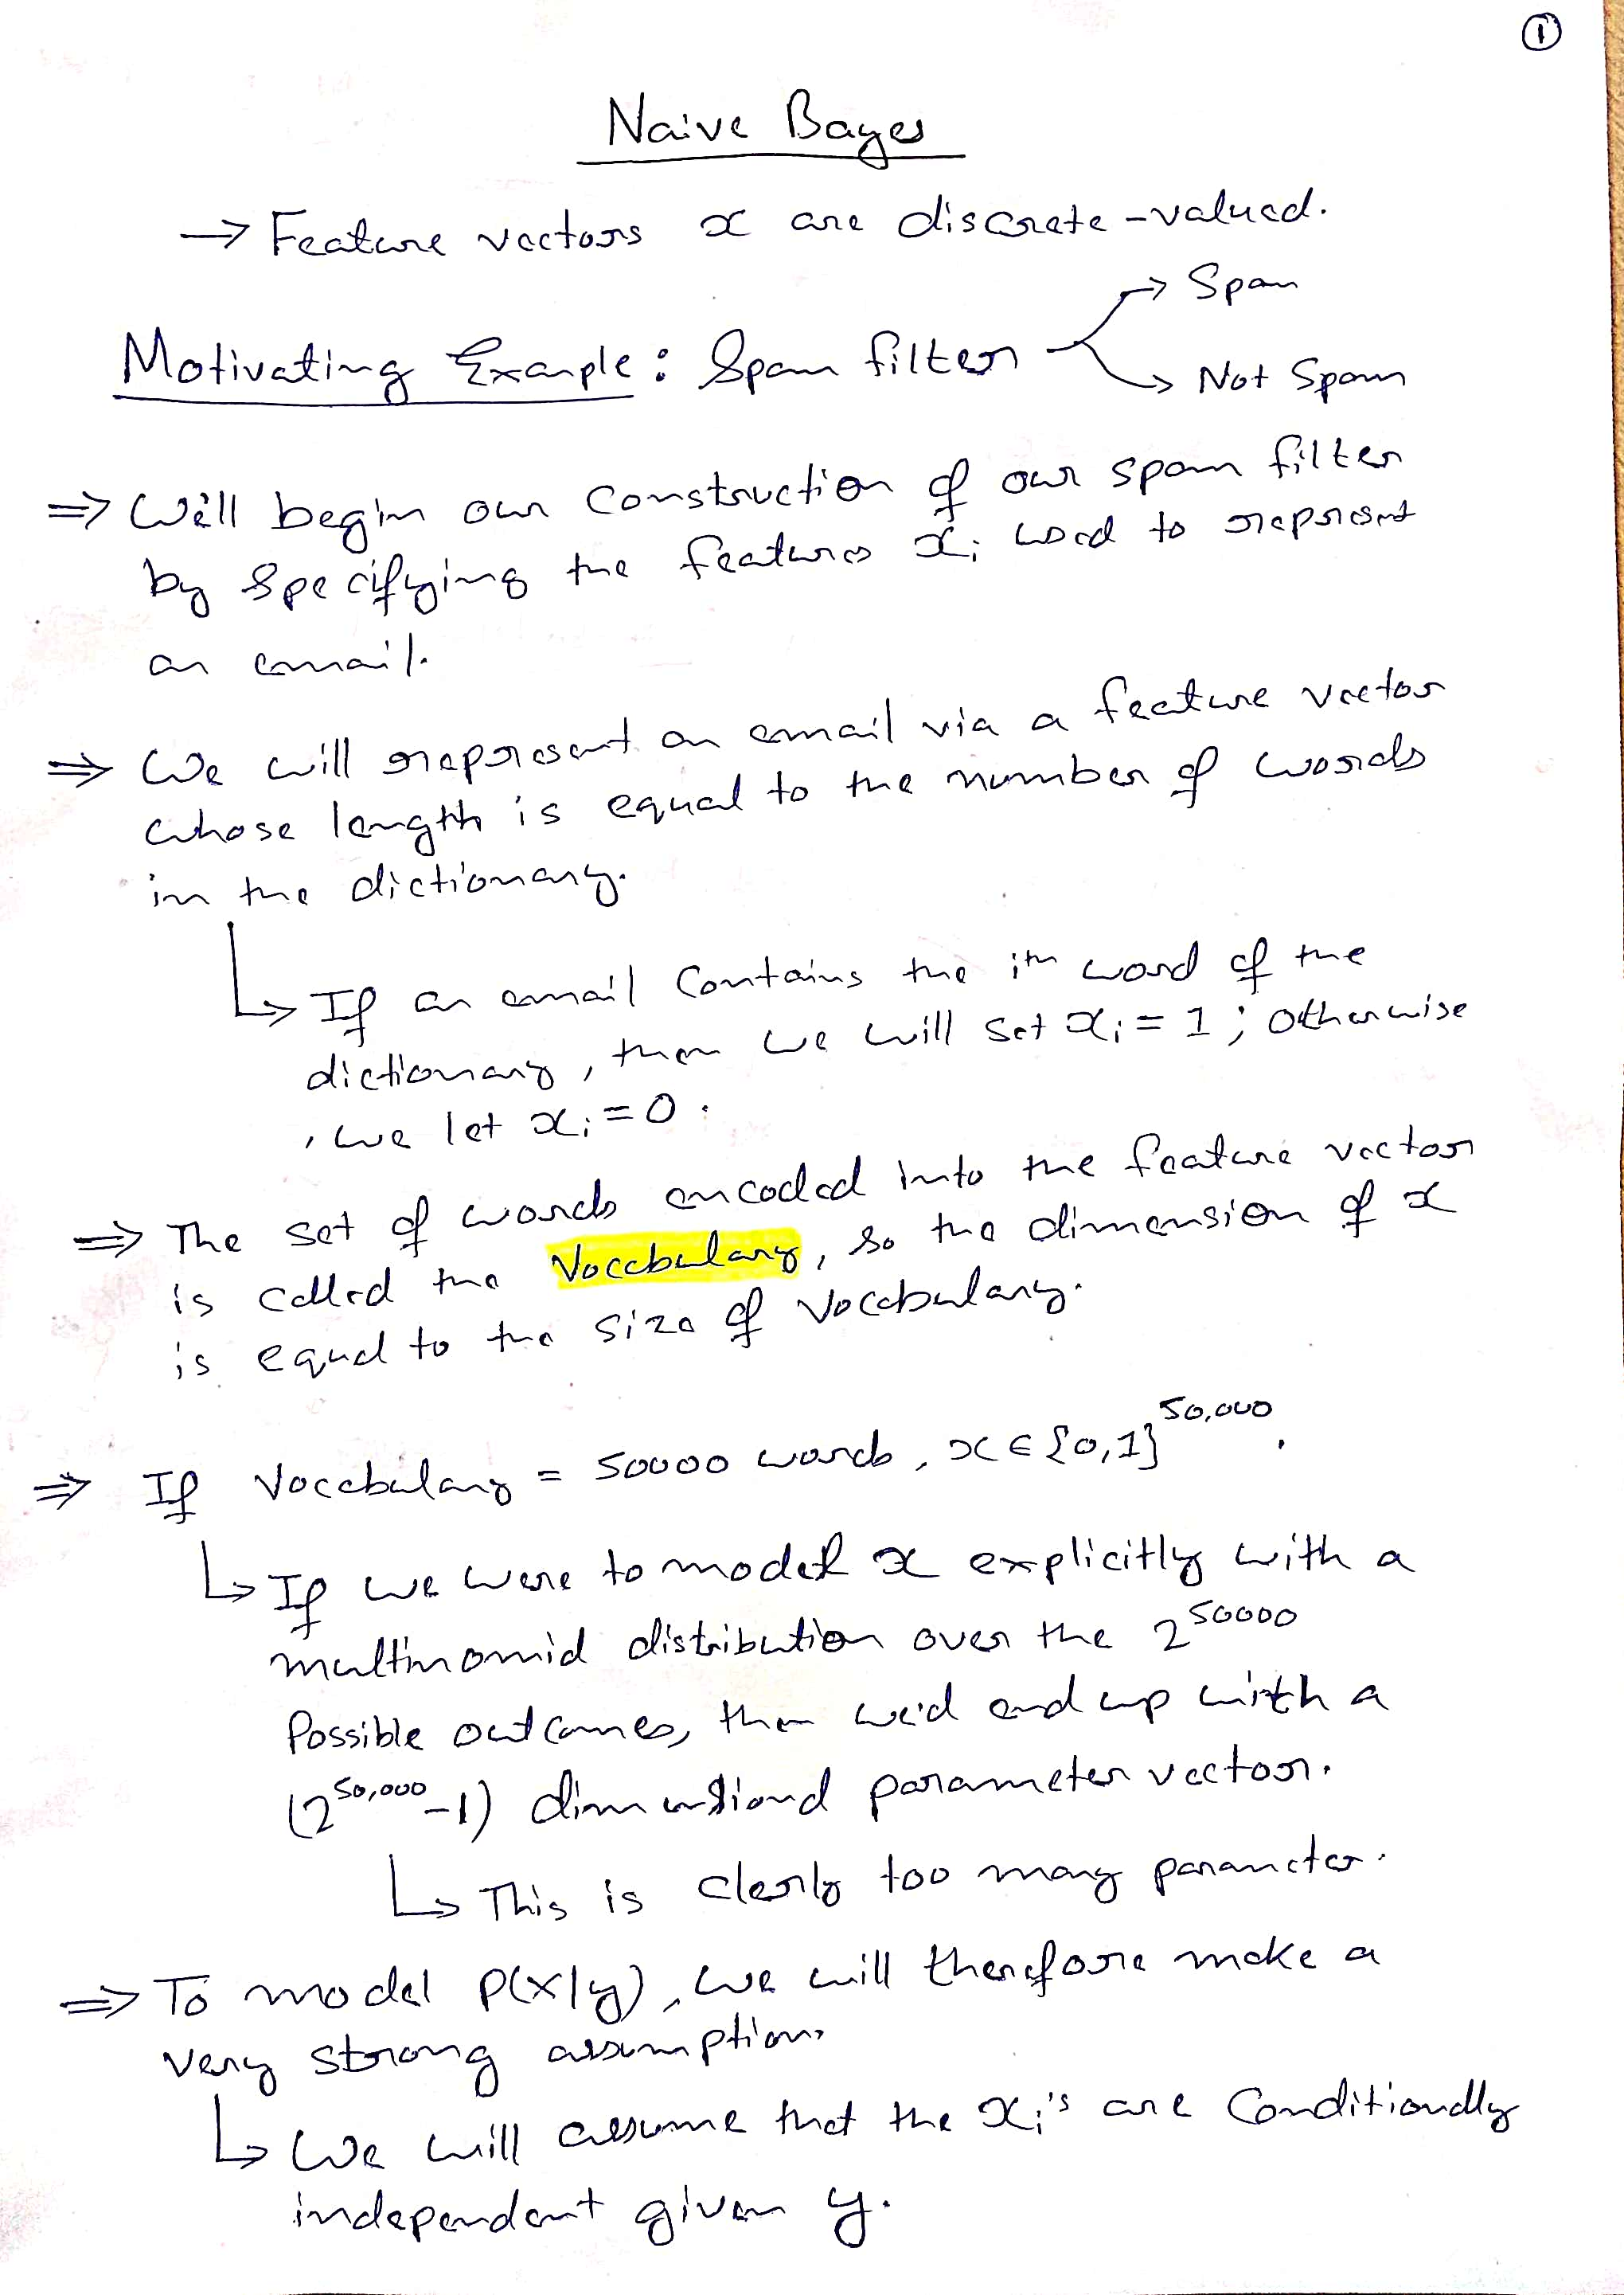 ①
Naive Bayes
→ Feature vectors x are discrete-valued.
→ Spam
Motivating Example: Spam filter
→ Not Spam
⇒ Will begin our construction of our spam filter
by specifying the features xᵢ used to represent
an email.
⇒ We will represent an email via a feature vector
whose length is equal to the number of words
in the dictionary.
↳ If an email contains the iᵗʰ word of the
dictionary, then we will set xᵢ = 1; otherwise
, we let xᵢ = 0.
⇒ The set of words encoded into the feature vector
is called the Vocabulary, so the dimension of x
is equal to the size of vocabulary.
⇒ If Vocabulary = 50000 words, x ∈ {0,1}^50,000.
↳ If we were to model x explicitly with a
multinomial distribution over the 2^50000
possible outcomes, then we'd end up with a
(2^50,000 - 1) dimensional parameter vector.
↳ This is clearly too many parameter.
⇒ To model P(x|y), we will therefore make a
very strong assumption.
↳ We will assume that the xᵢ's are Conditionally
independent given y.